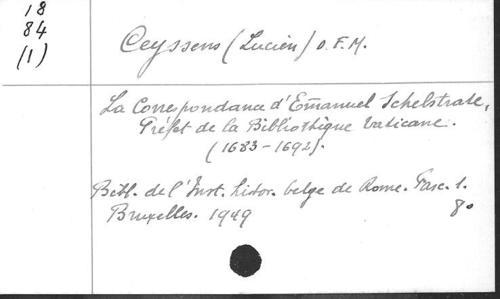 18
84
(1)
Ceyssens (Lucien) O.F.M.
La Correspondance d'Emmanuel Schelstrate,
Préfet de la Bibliothèque Vaticane.
(1683-1692).
Bibl. de l'Inst. histor. belge de Rome. Fasc. 1.
Bruxelles. 1949 8°